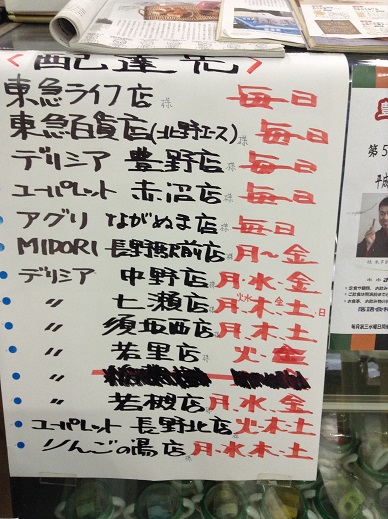 <配達先>
東急ライフ店様 毎日
東急百貨店(北野エース)様 毎日
デリシア 豊野店様 毎日
ユーパレット 赤沼店様 毎日
アグリ ながぬま店様 毎日
MIDORI 長野駅前店様 月〜金
デリシア 中野店様 月.水.金
〃 七瀬店様 月.木.土
〃 須坂西店様 月.木.土
〃 若里店様 火.金
〃 若槻店様 月.水.金
ユーパレット 長野北店様 火.木.土
りんごの湯店様 月.水.木.土
第5
平成